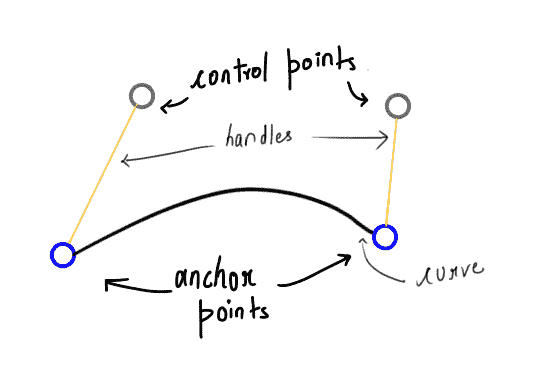 control points
handles
anchor
points
curve